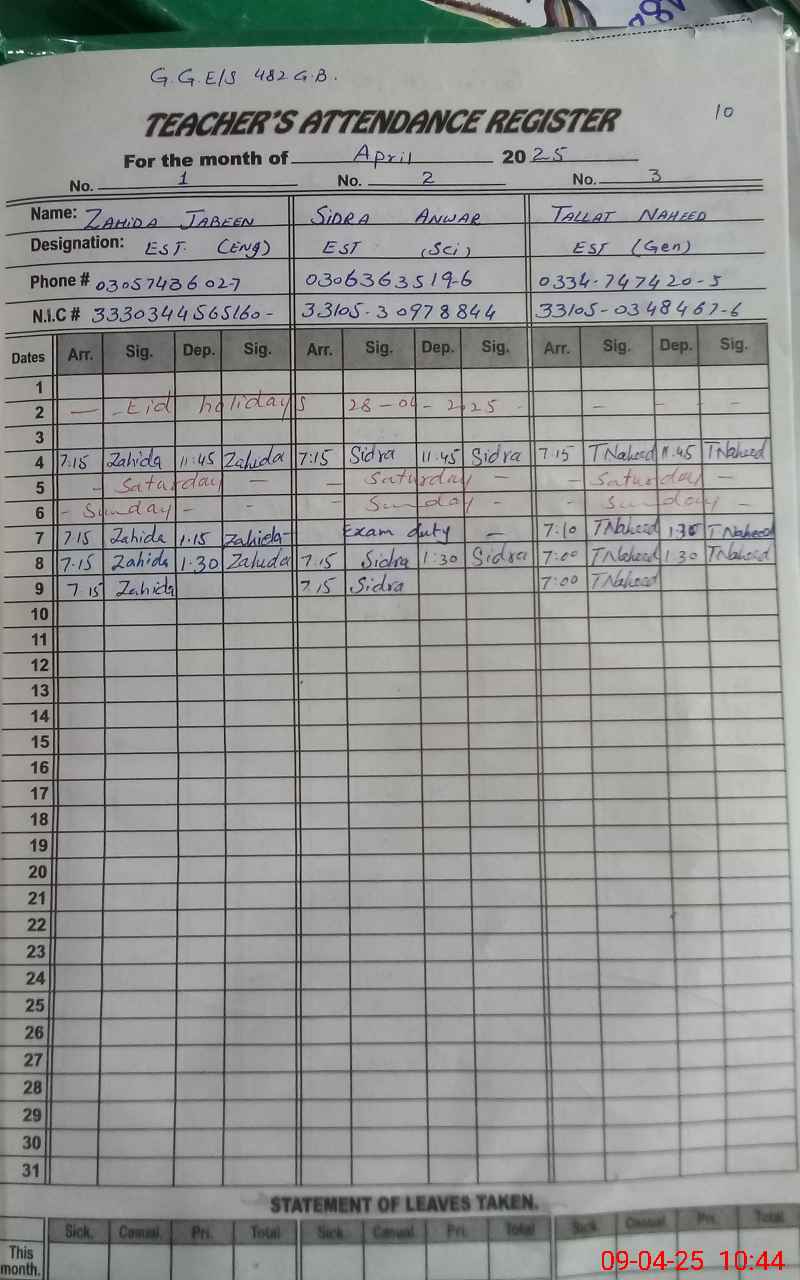 G.G.E/S 482 G.B.
10
TEACHER'S ATTENDANCE REGISTER
For the month of April 2025
No. 1 No. 2 No. 3
Name: ZAHIDA JABEEN SIDRA ANWAR TALLAT NAHEED
Designation: EST. (Eng) EST (Sci) EST (Gen)
Phone # 03057436027 03063635196 0334-747420-5
N.I.C # 3330344565160- 33105-30978844 33105-0348467-6
Dates Arr. Sig. Dep. Sig. Arr. Sig. Dep. Sig. Arr. Sig. Dep. Sig.
1
2 — Eid holidays 28-04-2025 - - - -
3
4 7:15 Zahida 11:45 Zahida 7:15 Sidra 11:45 Sidra 7:15 TNaheed 11:45 TNaheed
5 - Saturday - - Saturday - - Saturday -
6 - Sunday - - Sunday - - Sunday -
7 7:15 Zahida 1:15 Zahida Exam duty - 7:10 TNaheed 1:30 TNaheed
8 7:15 Zahida 1:30 Zahida 7:15 Sidra 1:30 Sidra 7:00 TNaheed 1:30 TNaheed
9 7:15 Zahida 7:15 Sidra 7:00 TNaheed
10
11
12
13
14
15
16
17
18
19
20
21
22
23
24
25
26
27
28
29
30
31
STATEMENT OF LEAVES TAKEN.
Sick. Casual. Pri. Total Sick. Casual. Pri. Total Sick Casual. Pri. Total
This month.
09-04-25 10:44